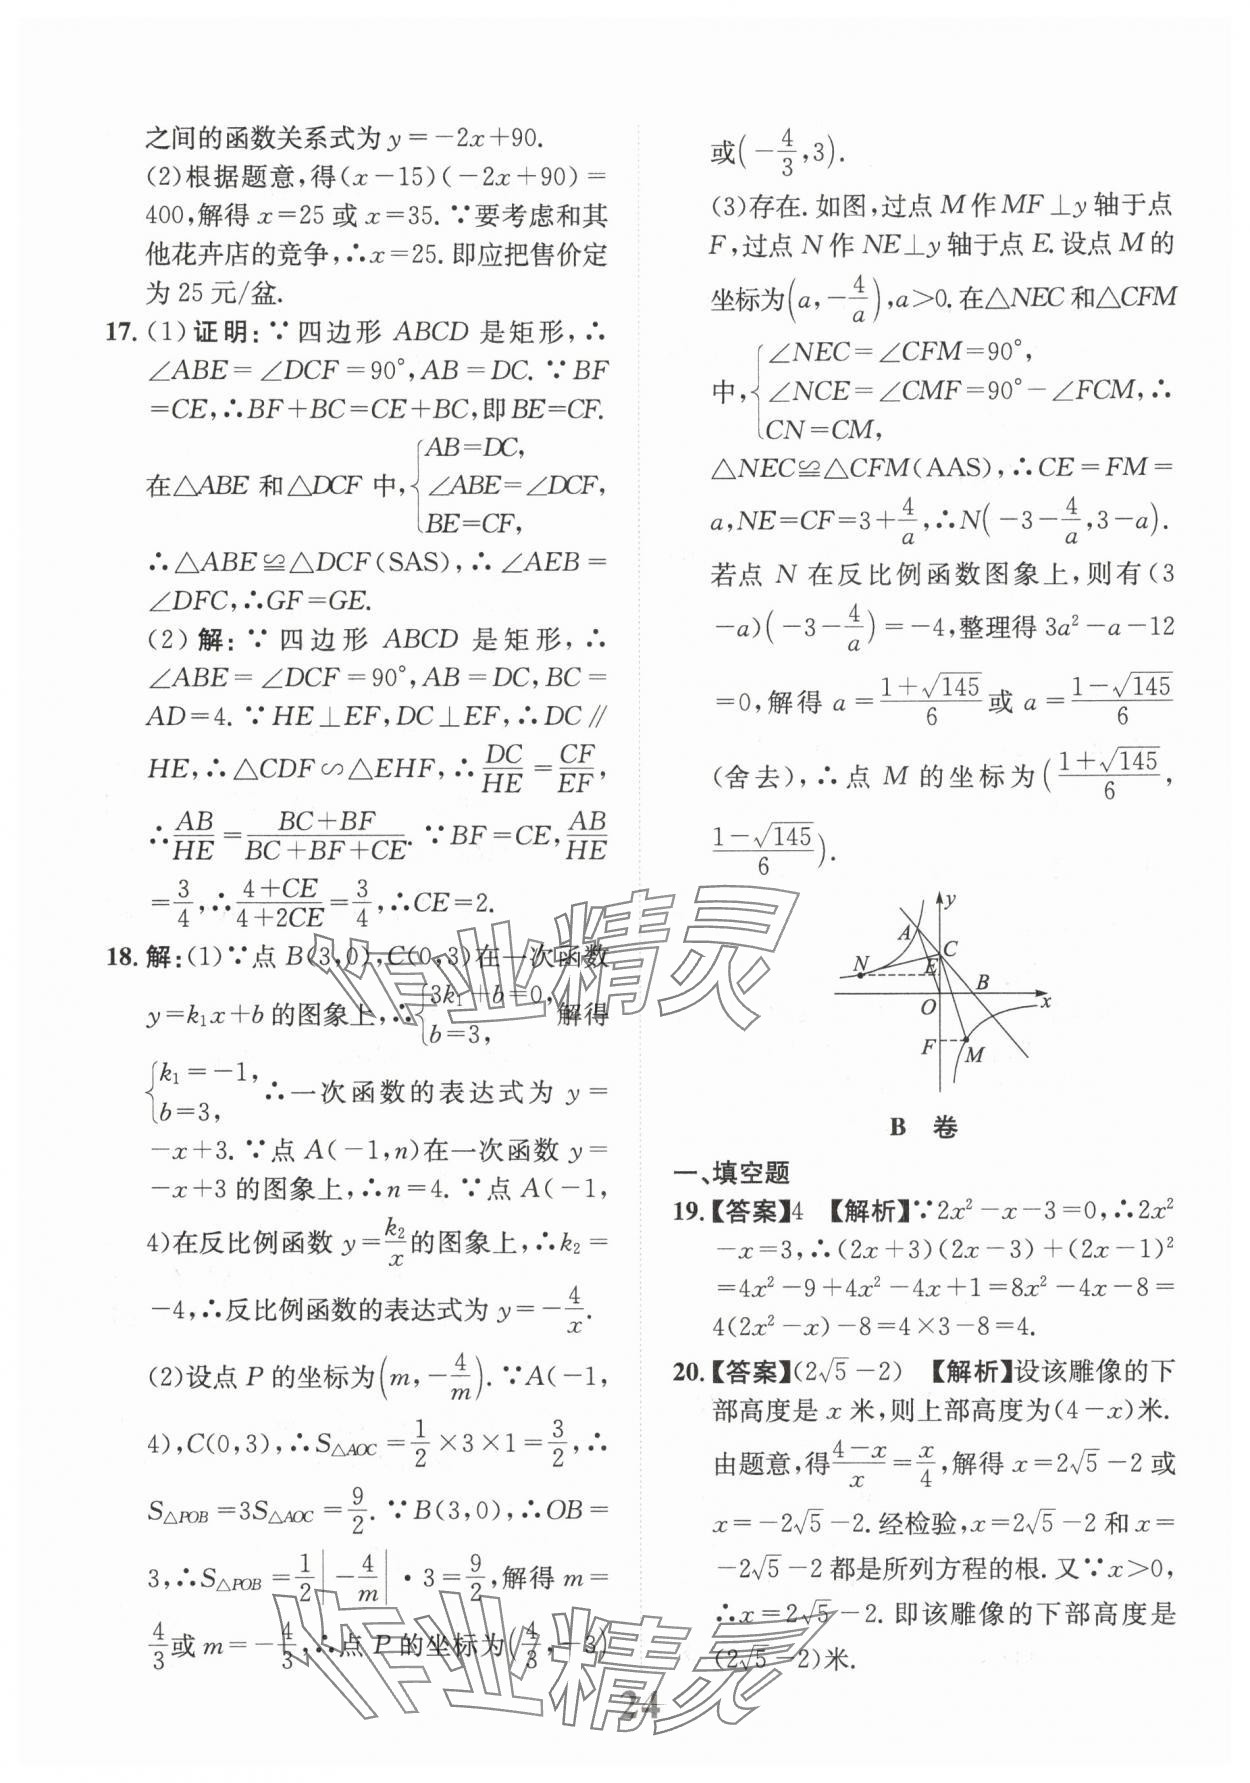 之间的函数关系式为 y=-2x+90.
(2)根据题意,得(x-15)(-2x+90)=
400,解得 x=25 或 x=35. ∵要考虑和其
他花卉店的竞争,∴x=25. 即应把售价定
为 25 元/盆.
17. (1)证明:∵ 四边形 ABCD 是矩形,∴
∠ABE=∠DCF=90°,AB=DC. ∵BF
=CE,∴BF+BC=CE+BC,即BE=CF.
在△ABE 和△DCF 中,{AB=DC,
∠ABE=∠DCF,
BE=CF,
∴△ABE≌△DCF(SAS),∴∠AEB=
∠DFC,∴GF=GE.
(2)解:∵ 四边形 ABCD 是矩形,∴
∠ABE=∠DCF=90°,AB=DC,BC=
AD=4. ∵HE⊥EF,DC⊥EF,∴DC∥
HE,∴△CDF∽△EHF,∴DC/HE=CF/EF,
∴AB/HE=(BC+BF)/(BC+BF+CE). ∵BF=CE,AB/HE
=3/4,∴(4+CE)/(4+2CE)=3/4,∴CE=2.
18. 解:(1)∵点 B(3,0),C(0,3)在一次函数
y=k₁x+b 的图象上,∴{3k₁+b=0, b=3, 解得
{k₁=-1, b=3, ∴一次函数的表达式为 y=
-x+3. ∵点 A(-1,n)在一次函数 y=
-x+3 的图象上,∴n=4. ∵点 A(-1,
4)在反比例函数 y=k₂/x的图象上,∴k₂=
-4,∴反比例函数的表达式为 y=-4/x.
(2)设点 P 的坐标为(m,-4/m). ∵A(-1,
4),C(0,3),∴S△AOC=1/2×3×1=3/2,∴
S△POB=3S△AOC=9/2. ∵B(3,0),∴OB=
3,∴S△POB=1/2|-4/m|·3=9/2,解得 m=
4/3或 m=-4/3,∴点 P 的坐标为(4/3,-3)
或(-4/3,3).
(3)存在. 如图,过点 M 作 MF⊥y 轴于点
F,过点 N 作 NE⊥y 轴于点 E. 设点 M 的
坐标为(a,-4/a),a>0. 在△NEC 和△CFM
中,{∠NEC=∠CFM=90°,
∠NCE=∠CMF=90°-∠FCM,∴
CN=CM,
△NEC≌△CFM(AAS),∴CE=FM=
a,NE=CF=3+4/a,∴N(-3-4/a,3-a).
若点 N 在反比例函数图象上,则有(3
-a)(-3-4/a)=-4,整理得 3a²-a-12
=0,解得 a=(1+√145)/6或 a=(1-√145)/6
(舍去),∴点 M 的坐标为((1+√145)/6,
(1-√145)/6).
y
A
C
N
E
B
O
x
F
M
B 卷
一、填空题
19.【答案】4 【解析】∵2x²-x-3=0,∴2x²
-x=3,∴(2x+3)(2x-3)+(2x-1)²
=4x²-9+4x²-4x+1=8x²-4x-8=
4(2x²-x)-8=4×3-8=4.
20.【答案】(2√5-2) 【解析】设该雕像的下
部高度是 x 米,则上部高度为(4-x)米.
由题意,得(4-x)/x=x/4,解得 x=2√5-2 或
x=-2√5-2. 经检验,x=2√5-2 和 x=
-2√5-2 都是所列方程的根. 又∵x>0,
∴x=2√5-2. 即该雕像的下部高度是
(2√5-2)米.
作业精灵
作业精灵
24